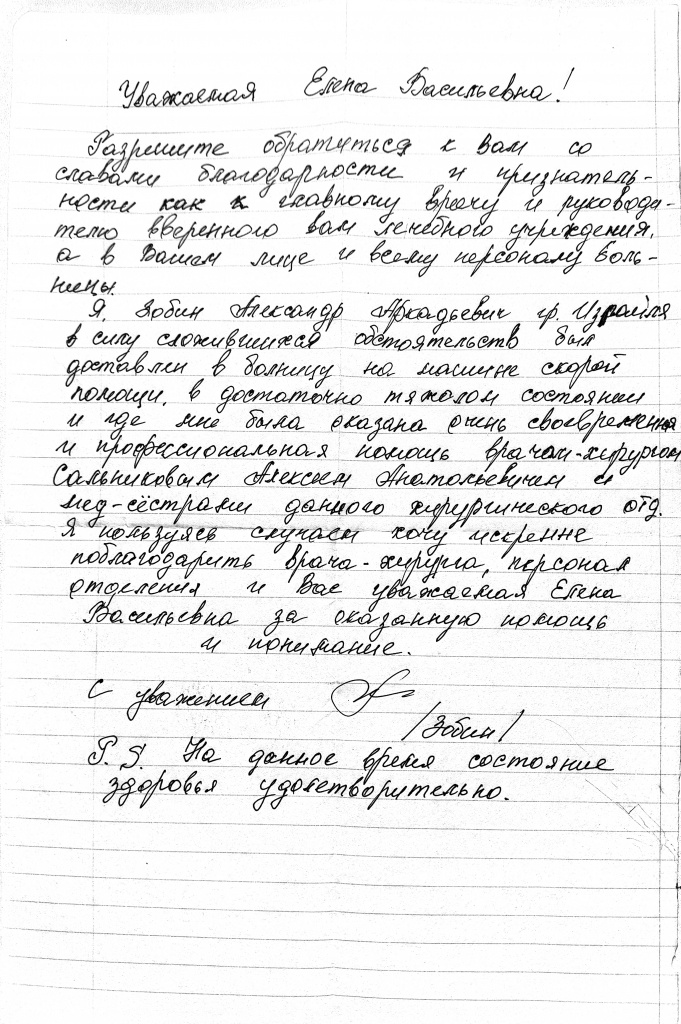 Уважаемая Елена Васильевна!
Разрешите обратиться к Вам со
славами благодарности и признатель-
ности как к главному врачу и руководи-
телю вверенного вам лечебного учреждения,
а в Вашем лице и всему персоналу боль-
ницы.
Я, Зобин Александр Аркадьевич гр. Израиля
в силу сложившихся обстоятельств был
доставлен в болницу на машине скорой
помощи, в достаточно тяжолом состоянии
и где мне была оказана очень своевременная
и профессиональная помощь врачом-хирургом
Сальниковым Алексеем Анатольевичем и
мед-сёстрами данного хирургического отд.
Я пользуясь случаем хочу искренне
поблагодарить врача-хирурга, персонал
отделения и Вас уважаемая Елена
Васильевна за оказанную помощь
и понимание.
С уважением
/Зобин/
P.S. На данное время состояние
здоровья удовлетворительно.